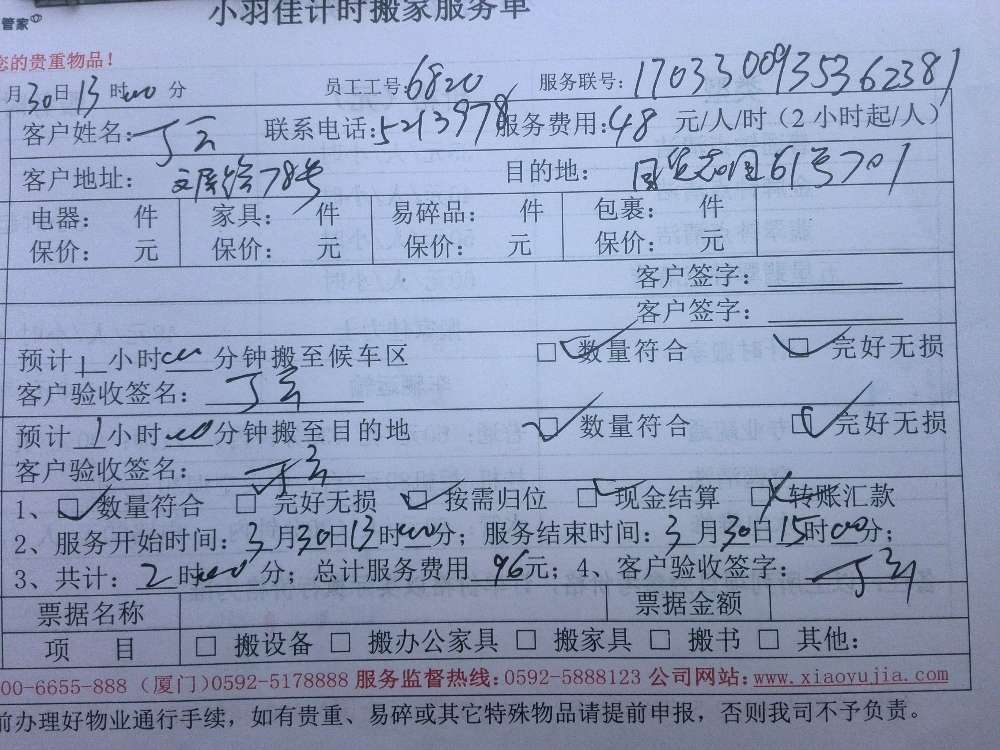 小羽佳计时搬家服务单
管家
您的贵重物品！
月30日13时00分 员工工号:6820 服务联号:1703300935362381
客户姓名:丁云 联系电话:5213978 服务费用:48 元/人/时（2小时起/人）
客户地址: 78号 目的地: 61号701
电器: 件 家具: 件 易碎品: 件 包裹: 件
保价: 元 保价: 元 保价: 元 保价: 元
客户签字:
客户签字:
预计1小时00分钟搬至候车区 □数量符合 □完好无损
客户验收签名:丁云
预计1小时00分钟搬至目的地 □数量符合 □完好无损
客户验收签名:丁云
1、□数量符合 □完好无损 □按需归位 □现金结算 □转账汇款
2、服务开始时间:3月30日13时00分；服务结束时间:3月30日15时00分；
3、共计:2时00分；总计服务费用 96元；4、客户验收签字:丁云
票据名称 票据金额
项 目 □ 搬设备 □ 搬办公家具 □ 搬家具 □ 搬书 □ 其他:
00-6655-888 (厦门)0592-5178888 服务监督热线:0592-5888123 公司网站:www.xiaoyujia.com
前办理好物业通行手续，如有贵重、易碎或其它特殊物品请提前申报，否则我司不予负责。